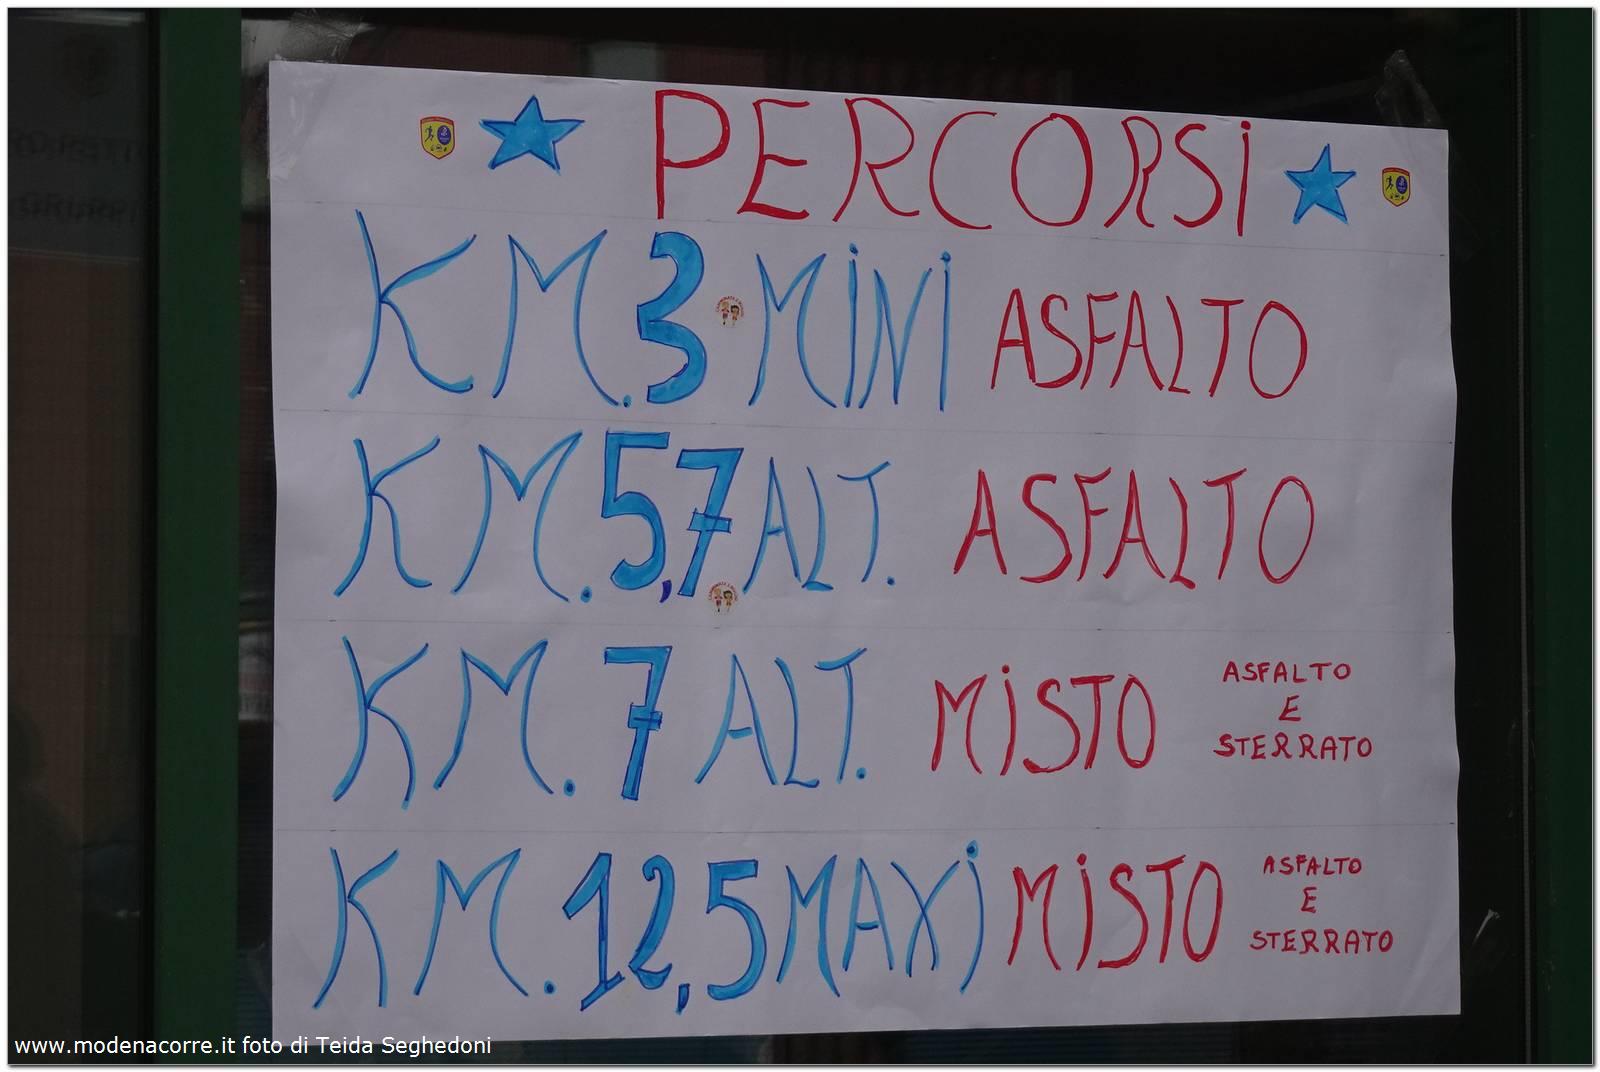 PERCORSI
KM. 3 MINI ASFALTO
KM. 5,7 ALT. ASFALTO
KM. 7 ALT. MISTO ASFALTO E STERRATO
KM. 12,5 MAXI MISTO ASFALTO E STERRATO
www.modenacorre.it foto di Teida Seghedoni